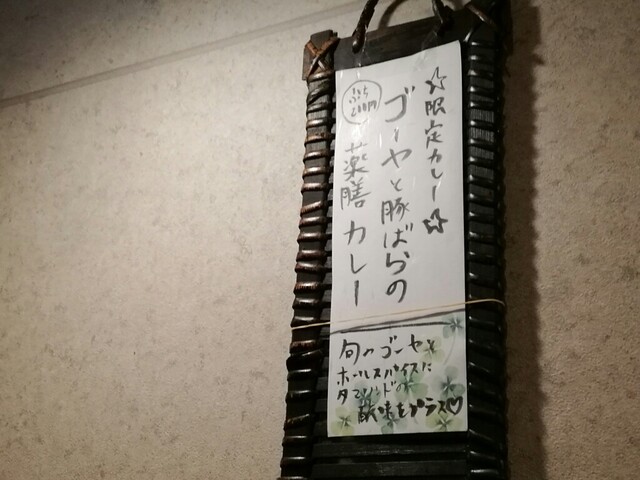 ☆限定カレー☆
ゴーヤと豚ばらの
薬膳カレー
旬のゴーヤと
ホールスパイスに
タマリンドの
酸味をプラス♡